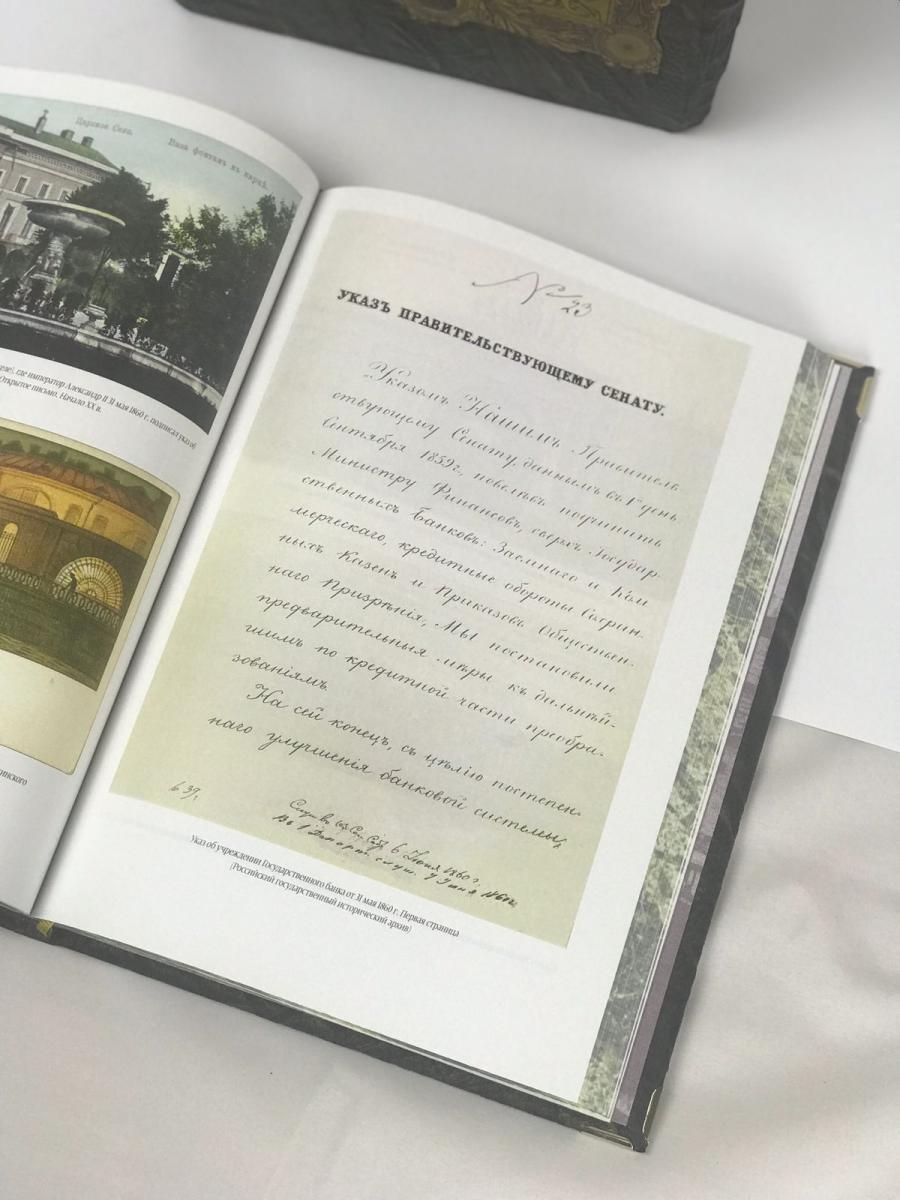 Царское Село.
Видъ фонтана въ паркѣ.
где император Александр II 31 мая 1860 г. подписал указ об
Открытое письмо. Начало XX в.
№ 23
УКАЗЪ ПРАВИТЕЛЬСТВУЮЩЕМУ СЕНАТУ.
Указомъ Нашимъ Правитель
ствующему Сенату, даннымъ въ 1й день
Сентября 1859 г., повелѣвъ подчинить
Министру Финансовъ, сверхъ Государ-
ственныхъ Банковъ: Заемнаго и Ком
мерческаго, кредитные обороты Сохран-
ныхъ Казенъ и Приказовъ Обществен-
наго Призрѣнія, Мы постановили
предварительныя мѣры къ дальнѣй-
шимъ по кредитной части преобра-
зованіямъ.
На сей конецъ, съ цѣлію постепен-
наго улучшенія банковой системы,
6 Іюня 1860 г.
Указ об учреждении Государственного банка от 31 мая 1860 г. Первая страница
(Российский государственный исторический архив)